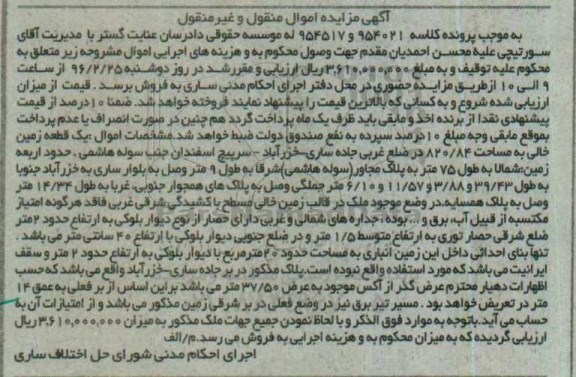 آگهی مزایده اموال منقول و غیرمنقول
به موجب پرونده کلاسه ۹۵۴۰۲۱ و ۹۵۴۵۱۷ له موسسه حقوقی دادرسان عنایت گستر با مدیریت آقای
سورتیچی علیه محسن احمدیان مقدم جهت وصول محکوم به و هزینه های اجرایی اموال مشروحه زیر متعلق به
محکوم علیه توقیف و به مبلغ ۳.۶۱۰.۰۰۰.۰۰۰ ریال ارزیابی و مقرر شد در روز دوشنبه ۹۶/۲/۲۵ از ساعت
۹ الی ۱۰ از طریق مزایده حضوری در محل دفتر اجرای احکام مدنی ساری به فروش برسد. قیمت از میزان
ارزیابی شده شروع و به کسانی که بالاترین قیمت را پیشنهاد نمایند فروخته خواهد شد. ضمنا ۱۰ درصد از قیمت
پیشنهادی نقدا از برنده اخذ و مابقی باید ظرف یک ماه پرداخت گردد هم چنین در صورت انصراف یا عدم پرداخت
بموقع مابقی وجه مبلغ ۱۰ درصد سپرده به نفع صندوق دولت ضبط خواهد شد.مشخصات اموال :یک قطعه زمین
خالی به مساحت ۸۲۰/۸۴ در ضلع غربی جاده ساری-خزرآباد - سرپیچ اسفندان جنب سوله هاشمی . حدود اربعه
زمین:شمالا به طول ۷۵ متر به پلاک مجاور(سوله هاشمی)شرقا به طول ۹ متر وصل به بلوار ساری به خزرآباد جنوبا
به طول ۳۹/۴۳ و ۳/۸۸ و ۱۱/۵۷ و ۶/۱۰ متر جملگی وصل به پلاک های همجوار جنوبی، غربا به طول ۱۴/۳۴ متر
وصل به پلاک همسایه.در وضع موجود ملک در قالب زمین خالی مسطح با کشیدگی شرقی غربی فاقد هرگونه امتیاز
مکتسبه از قبیل آب، برق و ... بوده ، جداره های شمالی و غربی دارای حصار از نوع دیوار بلوکی به ارتفاع حدود ۲ متر
ضلع شرقی حصار توری به ارتفاع متوسط ۱/۵ متر و در ضلع جنوبی دیوار بلوکی با ارتفاع ۴۰ سانتی متر می باشد .
تنها بنای احداثی داخل این زمین انباری به مساحت حدود ۲۰ مترمربع با دیوار بلوکی به ارتفاع حدود ۲ متر و سقف
ایرانیت می باشد که مورد استفاده واقع نبوده است.پلاک مذکور در بر جاده ساری-خزرآباد واقع می باشد که حسب
اظهارات دهیار محترم عرض گذر از آکس موجود به عرض ۳۷/۵۰ متر می باشد بر این اساس از بر فعلی به عمق ۱۴
متر در تعریض خواهد بود . مسیر تیر برق نیز در وضع فعلی در بر شرقی زمین مذکور می باشد و از امتیازات آن به
حساب می آید.باتوجه به موارد فوق الذکر و با لحاظ نمودن جمیع جهات ملک مذکور به میزان ۳.۶۱۰.۰۰۰.۰۰۰ ریال
ارزیابی گردیده که به میزان محکوم به و هزینه اجرایی به فروش می رسد.م/الف
اجرای احکام مدنی شورای حل اختلاف ساری